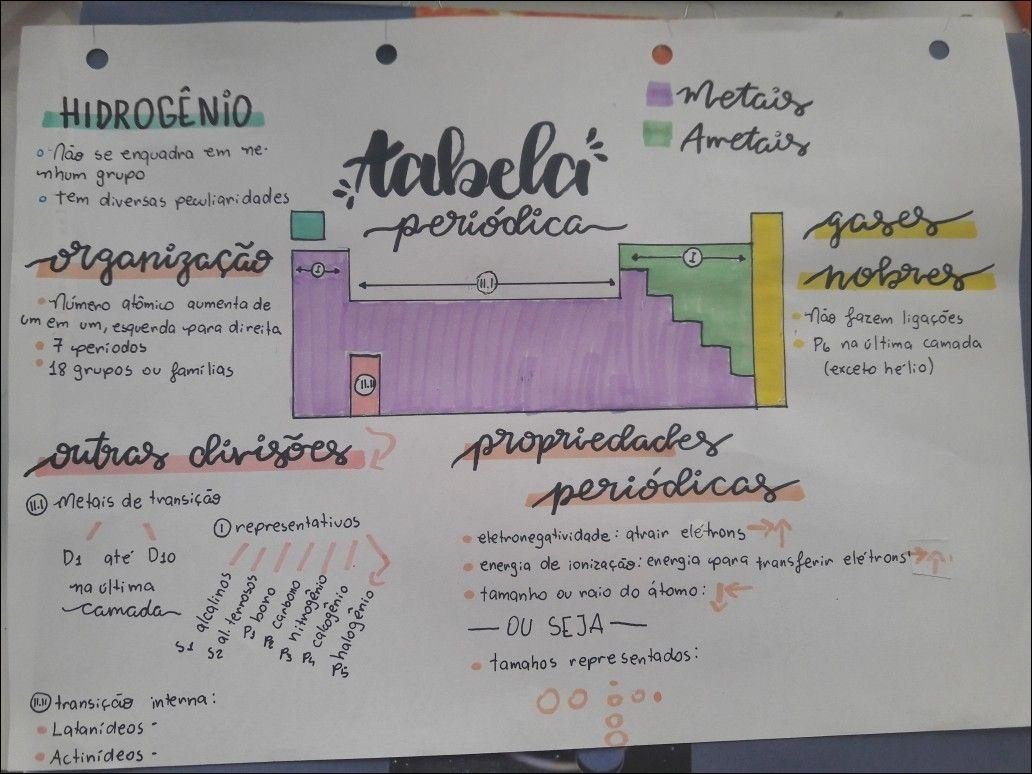 HIDROGÊNIO
Não se enquadra em ne-
nhum grupo
tem diversas peculiaridades
tabela
periódica
Metais
Ametais
organização
Número atômico aumenta de
um em um, esquerda para direita
7 períodos
18 grupos ou famílias
I
II.I
I
II.II
gases
nobres
Não fazem ligações
P6 na última camada
(exceto hélio)
outras divisões
II.I Metais de transição
D1 até D10
na última
camada
I representativos
S1 alcalinos
S2 al. terrosos
P1 boro
P2 carbono
P3 nitrogênio
P4 calcogênio
P5 halogênio
II.II transição interna:
Latanídeos -
Actinídeos -
propriedades
periódicas
eletronegatividade: atrair elétrons →↑
energia de ionização: energia para transferir elétrons →↑
tamanho ou raio do átomo: ↓←
— OU SEJA —
tamahos representados: